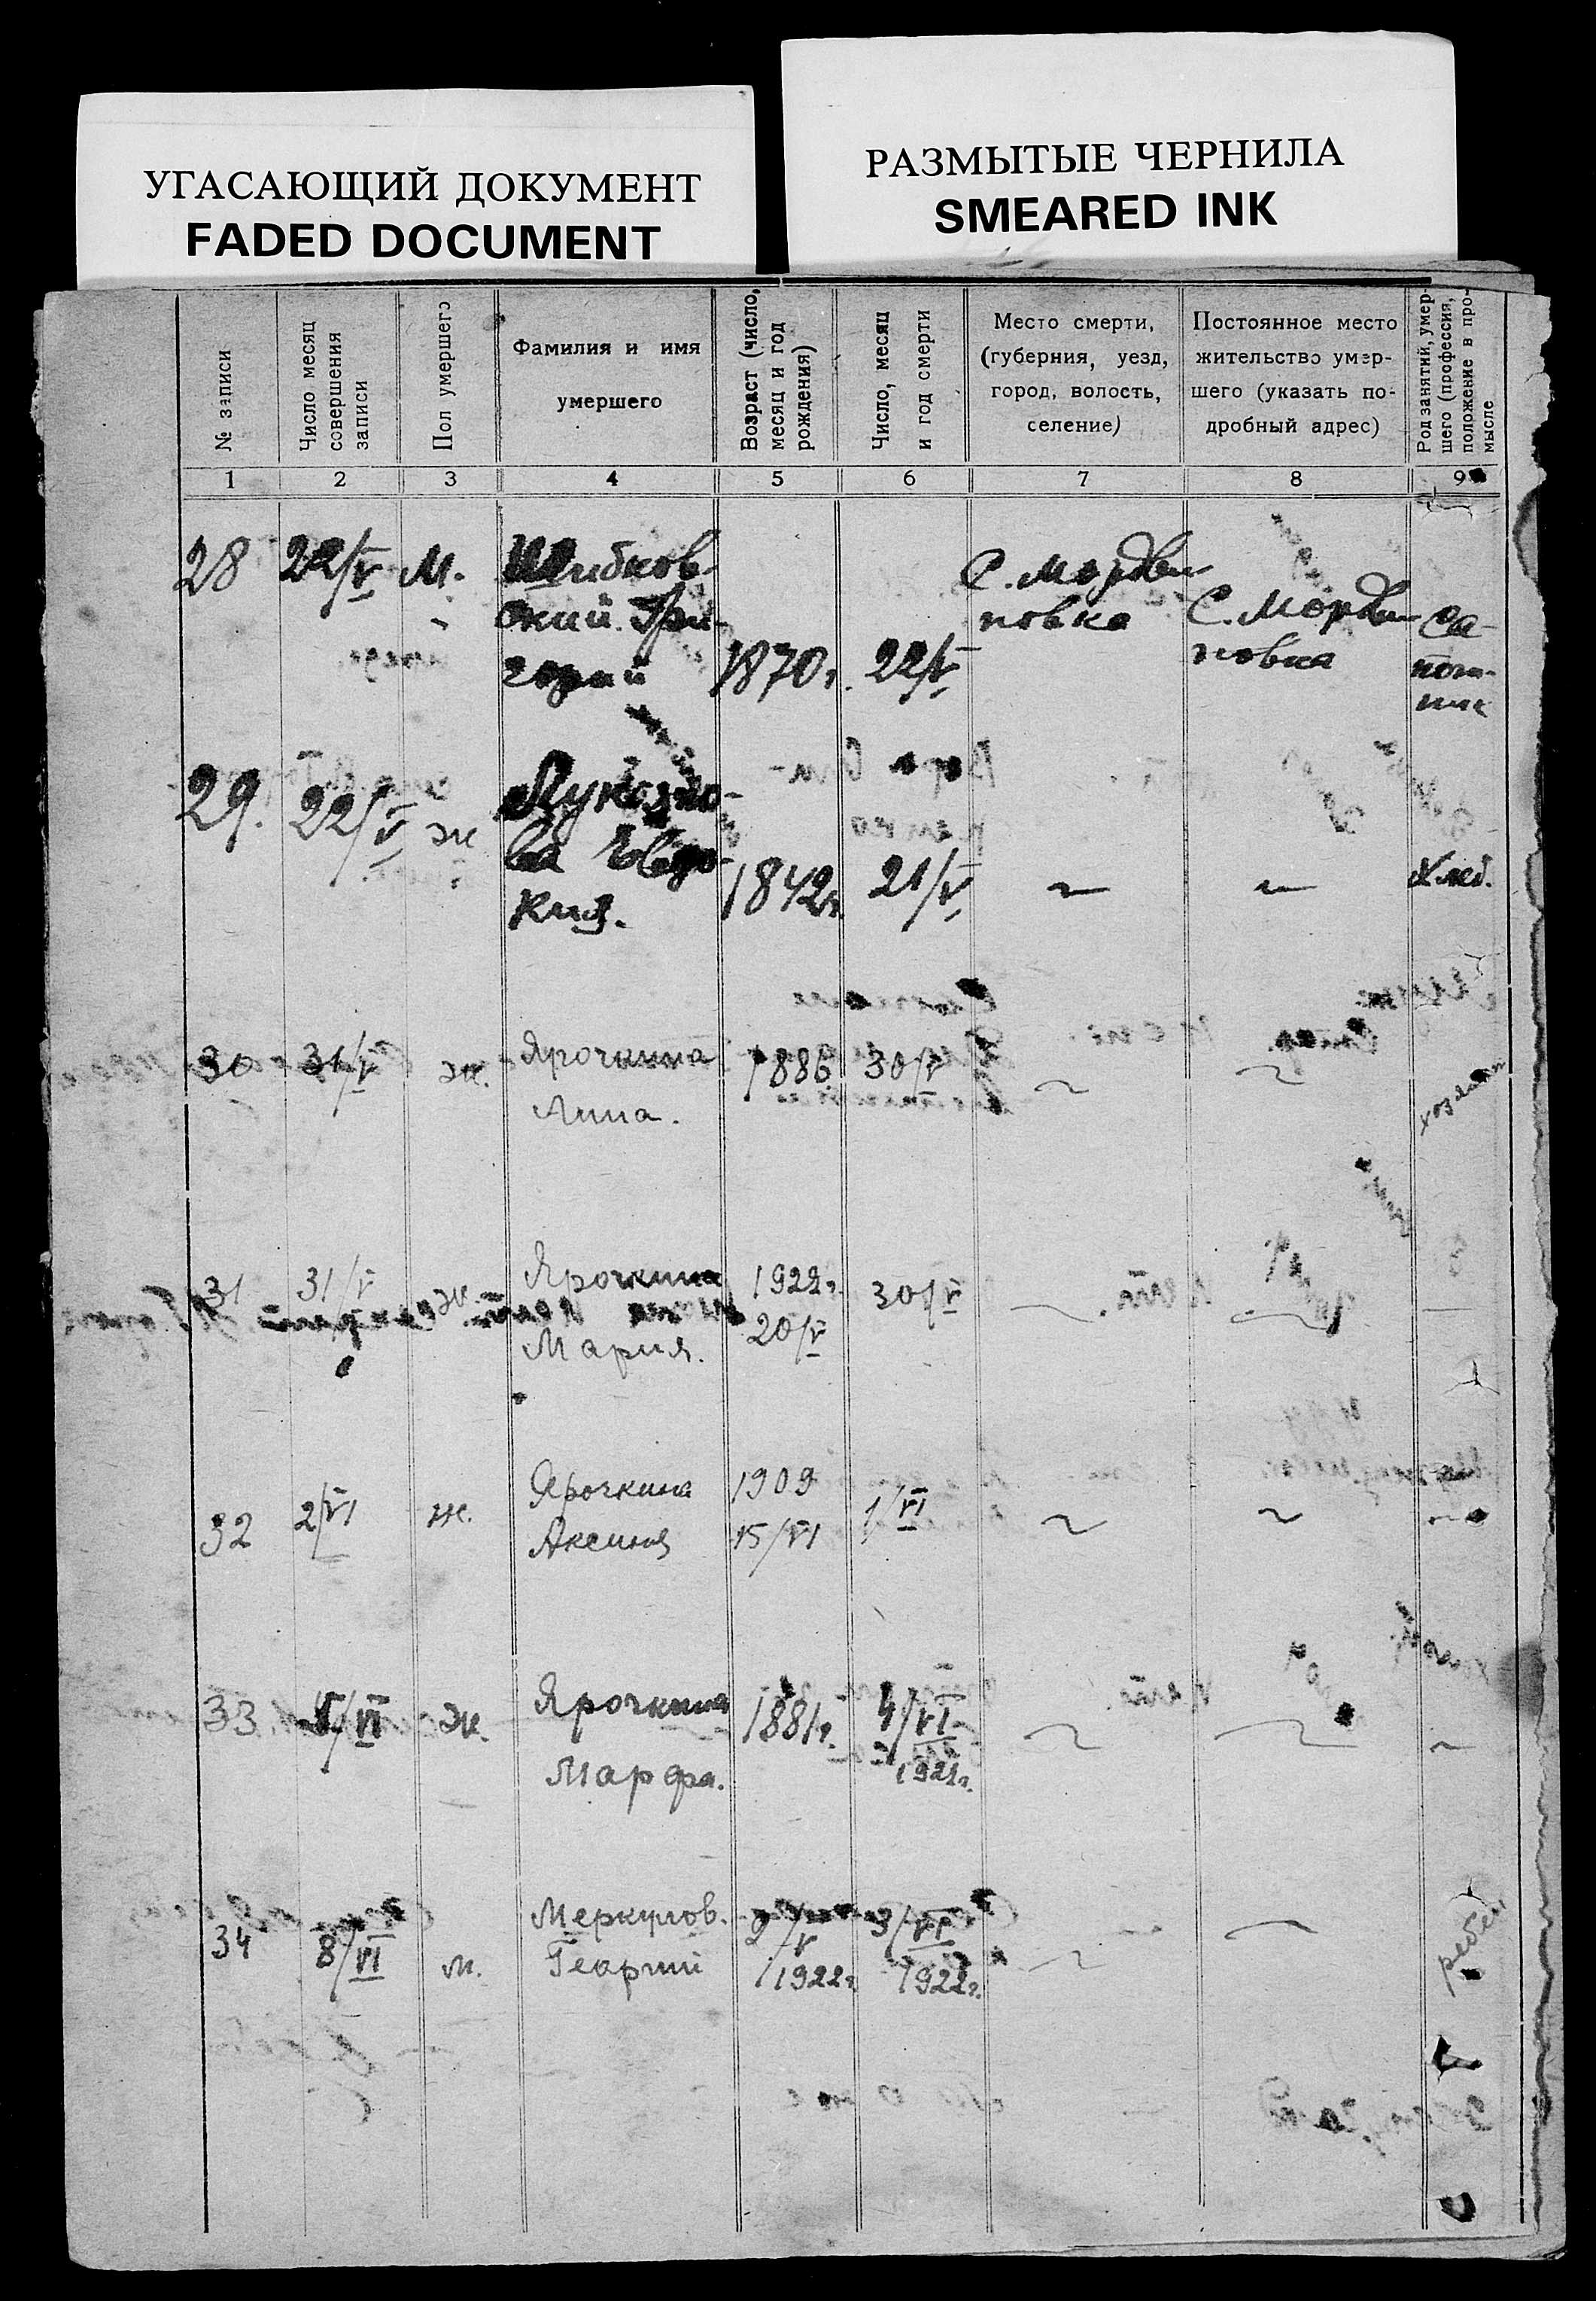 УГАСАЮЩИЙ ДОКУМЕНТ
FADED DOCUMENT
РАЗМЫТЫЕ ЧЕРНИЛА
SMEARED INK
№ записи
Число месяц
совершения
записи
Пол умершего
Фамилия и имя
умершего
Возраст (число,
месяц и год
рождения)
Число, месяц
и год смерти
Место смерти,
(губерния, уезд,
город, волость,
селение)
Постоянное место
жительство умер-
шего (указать по-
дробный адрес)
Род занятий, умер-
шего (профессия,
положение в про-
мысле
1 2 3 4 5 6 7 8 9
28 22/V М. Шибков-
ский Гри-
горий 1870г. 22/V
С. Мордви-
новка
С. Мордви-
новка
Са-
пож-
ник
29. 22/V ж
Лукья́но-
ва Евдо-
кия.
1842г. 21/V ~ ~ Хлеб.
30 31/V ж. Ярочкина 1886 30/V ~ ~
Анна.
31 31/V ж. Ярочкина 1922г. 30/V ~ ~
Мария. 20/V
32 2/VI ж. Ярочкина 1909 1/VI ~ ~
Аксиния 15/VI
33 5/VI ж. Ярочкина 1881г. 4/VI ~ ~ ~
Марфа. 192г.
34 8/VI м. Меркулов. 2/V 3/VI
Георгий 1922г. 1922г.
~ ~ ребен